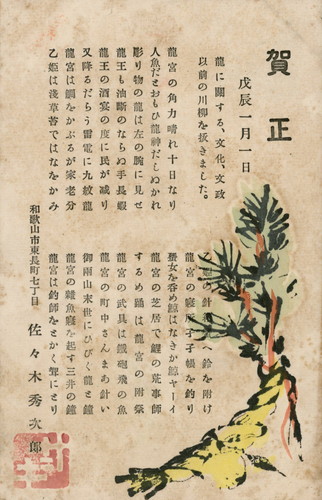 賀正
戊辰一月一日
龍に關する、文化、文政
以前の川柳を抜きました。
龍宮の角力晴れ十日なり
人魚だとおもひ龍神だしぬかれ
彫り物の龍は左の腕に見せ
龍王も油斷のならぬ手長蝦
龍王の酒宴の度に民が减り
又降るだらう雷電に九紋龍
龍宮は鯛をかぶるが家老分
乙姫は淺草苔ではなをかみ
針 へ鈴を附け
龍宮の寢 孑孑帳を釣り
蜑女を呑め鯨はなきか鯨ヤーイ
龍宮の芝居で鯉の荒事師
するめ踊は龍宮の附祭
龍宮の武具は鐵砲飛の魚
龍宮の町中さんまあ針い
御雨山末世にひびく龍と鐘
龍宮の雜魚寢を起す三井の鐘
龍宮は釣師をとかく聟にとり
和歌山市東長町七丁目
佐々木秀次郎